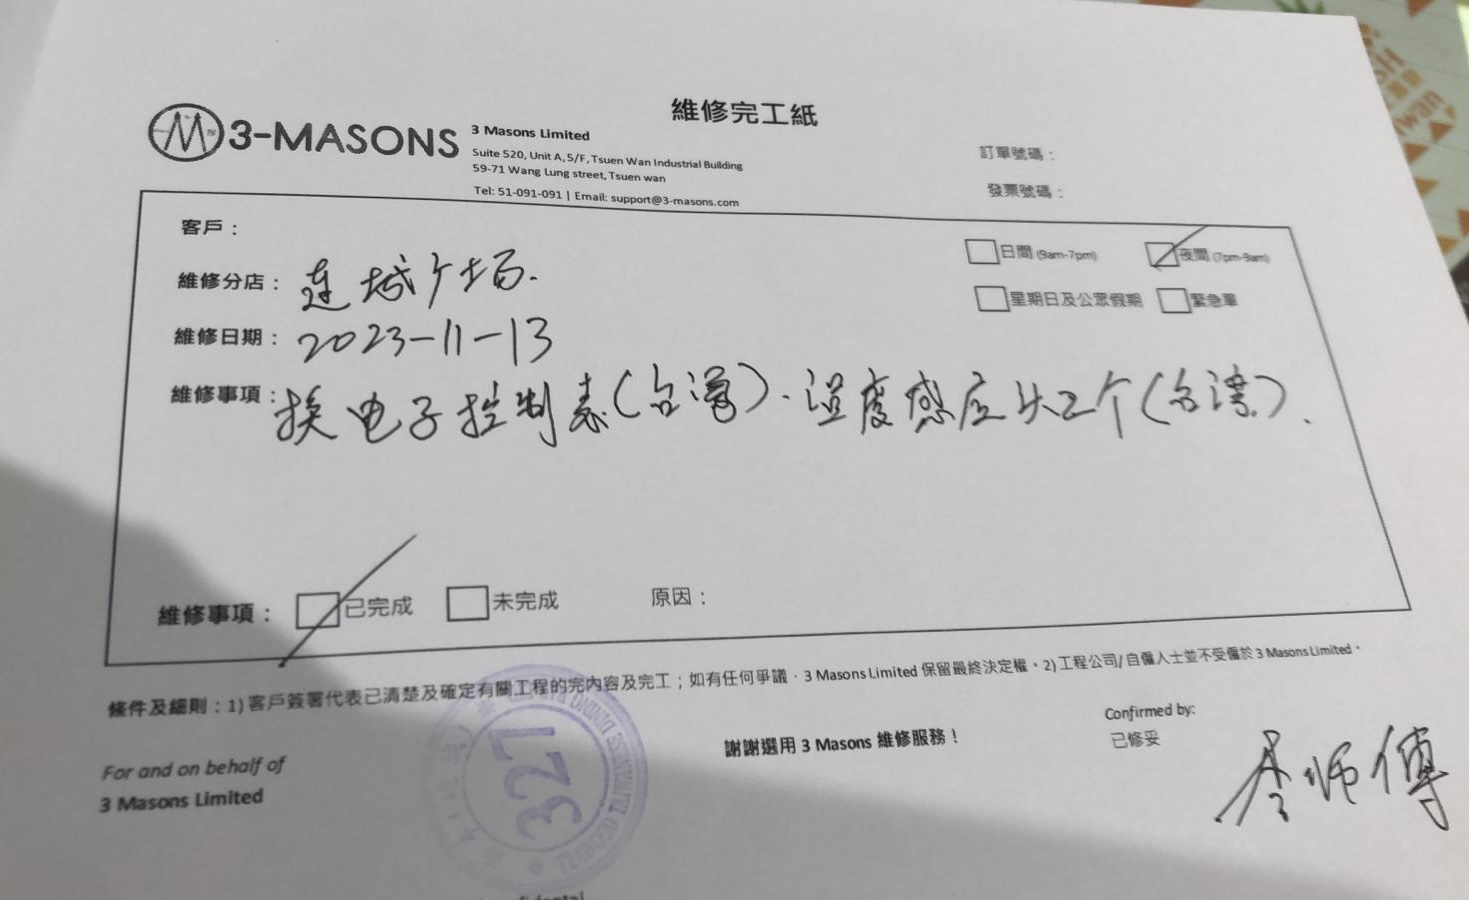 維修完工紙
3-MASONS
3 Masons Limited
Suite 520, Unit A, 5/F, Tsuen Wan Industrial Building
59-71 Wang Lung street, Tsuen wan
Tel: 51-091-091 | Email: support@3-masons.com
訂單號碼：
發票號碼：
客戶：
日間 (9am-7pm) 夜間 (7pm-9am)
維修分店：连城广场.
星期日及公眾假期 緊急單
維修日期：2023-11-13
維修事項：换电子控制表(台灣).温度感应头2个(台湾).
維修事項： 已完成 未完成 原因：
條件及細則：1) 客戶簽署代表已清楚及確定有關工程的完內容及完工；如有任何爭議，3 Masons Limited 保留最終決定權。2) 工程公司/ 自僱人士並不受僱於 3 Masons Limited。
For and on behalf of
3 Masons Limited
327
TAIWANESS DINING
謝謝選用 3 Masons 維修服務！
Confirmed by:
已修妥
李师傅